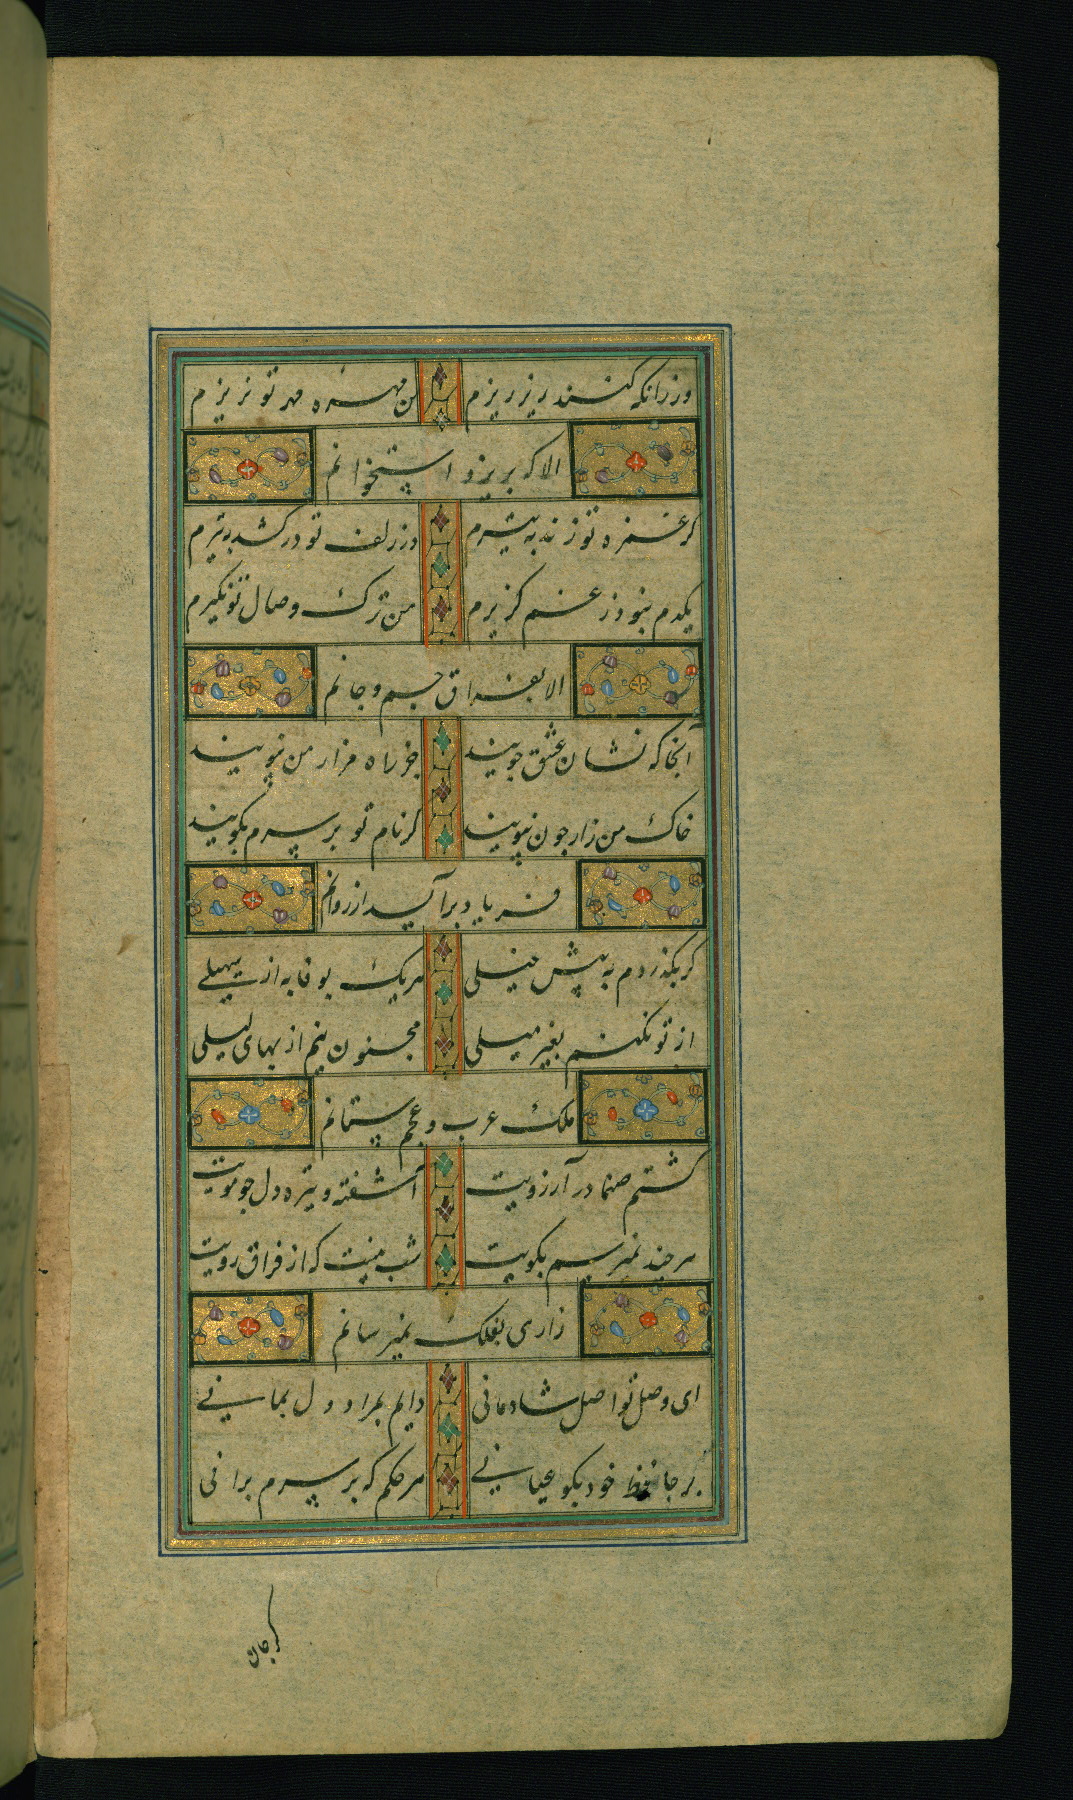 ور زانکه کنند ریز ریزم من مهره مهر تو نریزم
الا که بریزد استخوانم
گر غمزه تو زند به تیرم ور زلف تو درکشد به تیرم
یکدم نبود ز غم گزیرم من ترک وصال تو نگیرم
الا بفراق جسم و جانم
آنجا که نشان عشق جویند جز راه مزار من نپویند
خاک من زار چون ببویند گر نام تو بر سرم بگویند
فریاد برآید از روانم
گر بگذردم به پیش خیلی هر یک بوفا به از سهیلی
از تو نکنم بغیر میلی مجنون نیم از بهای لیلی
ملک عرب و عجم ستانم
گشتم صنما در آرزویت آشفته و تیره دل چو مویت
هر چند نمیرسم بکویت شب نیست که از فراق رویت
زاری بفلک نمیرسانم
ای وصل تو اصل شادمانی دایم بمراد دل بمانی
بر حافظ خود بگو عیانی هر حکم که بر سرم برانی